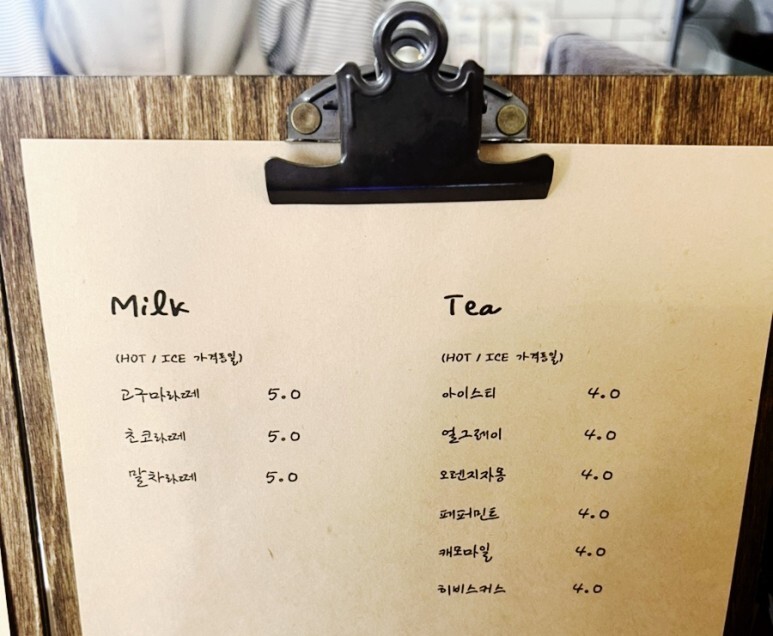 Milk
(HOT / ICE 가격동일)
고구마라떼 5.0
초코라떼 5.0
말차라떼 5.0
Tea
(HOT / ICE 가격동일)
아이스티 4.0
얼그레이 4.0
오렌지자몽 4.0
페퍼민트 4.0
캐모마일 4.0
히비스커스 4.0